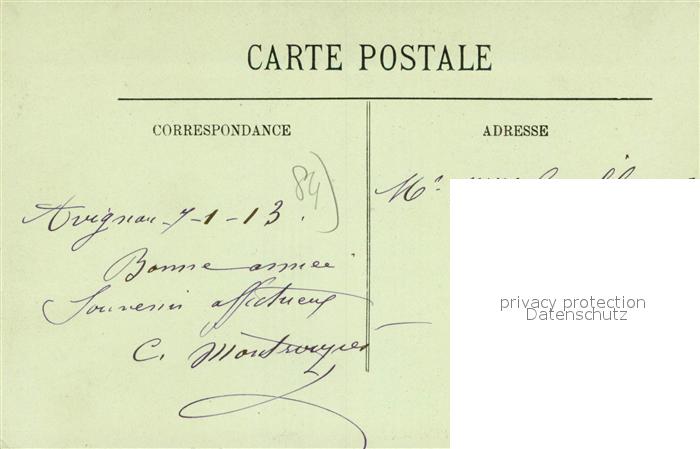 CARTE POSTALE
CORRESPONDANCE
ADRESSE
84)
Avignon 7-1-13.
Bonne année
Souvenir affectueux
C.
Mr.
privacy protection
Datenschutz